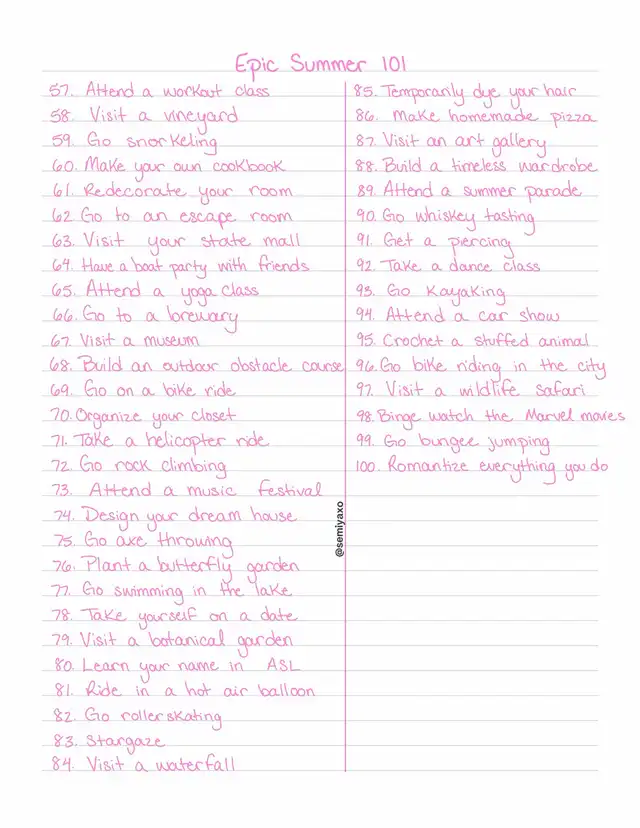 Epic Summer 101
57. Attend a workout class
58. Visit a vineyard
59. Go snorkeling
60. Make your own cookbook
61. Redecorate your room
62 Go to an escape room
63. Visit your state mall
64. Have a boat party with friends
65. Attend a yoga class
66. Go to a brewary
67. Visit a museum
68. Build an outdoor obstacle course
69. Go on a bike ride
70. Organize your closet
71. Take a helicopter ride
72. Go rock climbing
73. Attend a music festival
74. Design your dream house
75. Go axe throwing
76. Plant a butterfly garden
77. Go swimming in the lake
78. Take yourself on a date
79. Visit a botanical garden
80. Learn your name in ASL
81. Ride in a hot air balloon
82. Go rollerskating
83. Stargaze
84. Visit a waterfall
85. Temporarily dye your hair
86. Make homemade pizza
87. Visit an art gallery
88. Build a timeless wardrobe
89. Attend a summer parade
90. Go whiskey tasting
91. Get a piercing
92. Take a dance class
93. Go Kayaking
94. Attend a car show
95. Crochet a stuffed animal
96. Go bike riding in the city
97. Visit a wildlife safari
98. Binge watch the Marvel movies
99. Go bungee jumping
100. Romantize everything you do
@semiyaxo